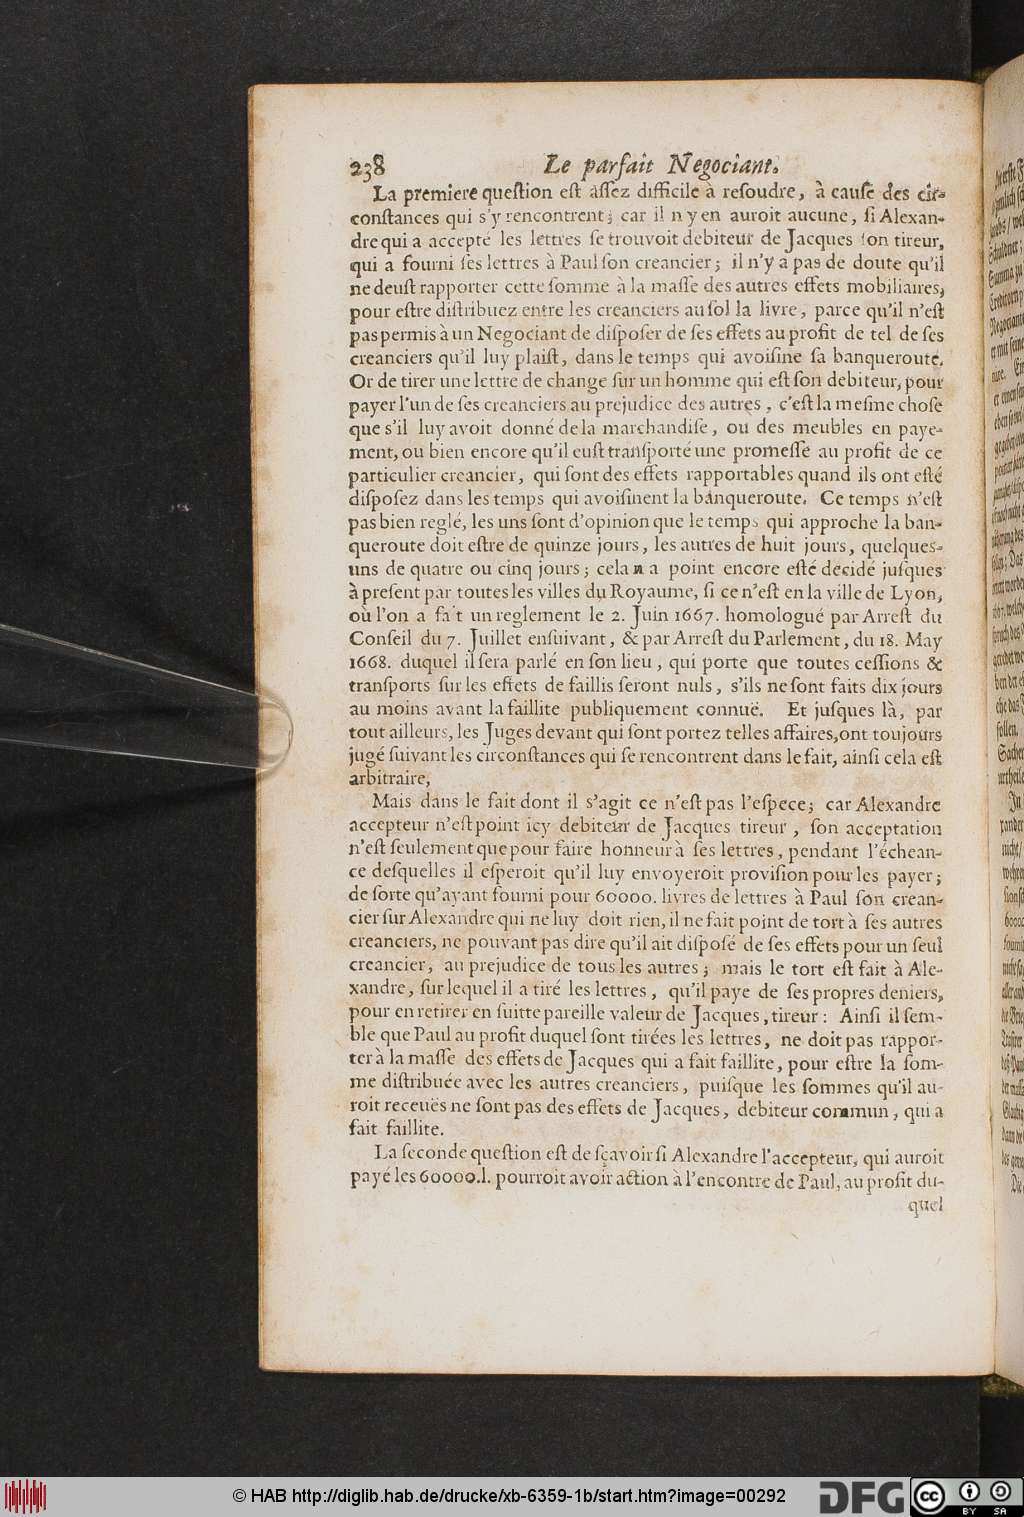 238 Le parfait Negociant.
La premiere queſtion eſt aſſez difficile à reſoudre, à cauſe des cir-
conſtances qui s'y rencontrent; car il n y en auroit aucune, ſi Alexan-
dre qui a accepté les lettres ſe trouvoit debiteur de Jacques ſon tireur,
qui a fourni ſes lettres à Paul ſon creancier; il n'y a pas de doute qu'il
ne deuſt rapporter cette ſomme à la maſſe des autres effets mobiliaires,
pour eſtre diſtribuez entre les creanciers au ſol la livre, parce qu'il n'eſt
pas permis à un Negociant de diſpoſer de ſes effets au profit de tel de ſes
creanciers qu'il luy plaiſt, dans le temps qui avoiſine ſa banqueroute.
Or de tirer une lettre de change ſur un homme qui eſt ſon debiteur, pour
payer l'un de ſes creanciers au prejudice des autres, c'eſt la meſme choſe
que s'il luy avoit donné de la marchandiſe, ou des meubles en paye-
ment, ou bien encore qu'il euſt tranſporté une promeſſe au profit de ce
particulier creancier, qui ſont des effets rapportables quand ils ont eſté
diſpoſez dans les temps qui avoiſinent la banqueroute. Ce temps n'eſt
pas bien reglé, les uns ſont d'opinion que le temps qui approche la ban-
queroute doit eſtre de quinze jours, les autres de huit jours, quelques-
uns de quatre ou cinq jours; cela n a point encore eſté decidé juſques
à preſent par toutes les villes du Royaume, ſi ce n'eſt en la ville de Lyon,
où l'on a fait un reglement le 2. Juin 1667. homologué par Arreſt du
Conſeil du 7. Juillet enſuivant, & par Arreſt du Parlement, du 18. May
1668. duquel il ſera parlé en ſon lieu, qui porte que toutes ceſſions &
tranſports ſur les effets de faillis ſeront nuls, s'ils ne ſont faits dix jours
au moins avant la faillite publiquement connuë. Et juſques là, par
tout ailleurs, les Juges devant qui ſont portez telles affaires, ont toujours
jugé ſuivant les circonſtances qui ſe rencontrent dans le fait, ainſi cela eſt
arbitraire,
Mais dans le fait dont il s'agit ce n'eſt pas l'eſpece; car Alexandre
accepteur n'eſt point icy debiteur de Jacques tireur, ſon acceptation
n'eſt ſeulement que pour faire honneur à ſes lettres, pendant l'échean-
ce deſquelles il eſperoit qu'il luy envoyeroit proviſion pour les payer;
de ſorte qu'ayant fourni pour 60000. livres de lettres à Paul ſon crean-
cier ſur Alexandre qui ne luy doit rien, il ne fait point de tort à ſes autres
creanciers, ne pouvant pas dire qu'il ait diſpoſé de ſes effets pour un ſeul
creancier, au prejudice de tous les autres; mais le tort eſt fait à Ale-
xandre, ſur lequel il a tiré les lettres, qu'il paye de ſes propres deniers,
pour en retirer en ſuitte pareille valeur de Jacques, tireur: Ainſi il ſem-
ble que Paul au profit duquel ſont tirées les lettres, ne doit pas rappor-
ter à la maſſe des effets de Jacques qui a fait faillite, pour eſtre la ſom-
me diſtribuée avec les autres creanciers, puiſque les ſommes qu'il au-
roit receuës ne ſont pas des effets de Jacques, debiteur commun, qui a
fait faillite.
La ſeconde queſtion eſt de ſçavoir ſi Alexandre l'accepteur, qui auroit
payé les 60000.l. pourroit avoir action à l'encontre de Paul, au profit du-
quel
© HAB http://diglib.hab.de/drucke/xb-6359-1b/start.htm?image=00292
DFG
cc BY SA